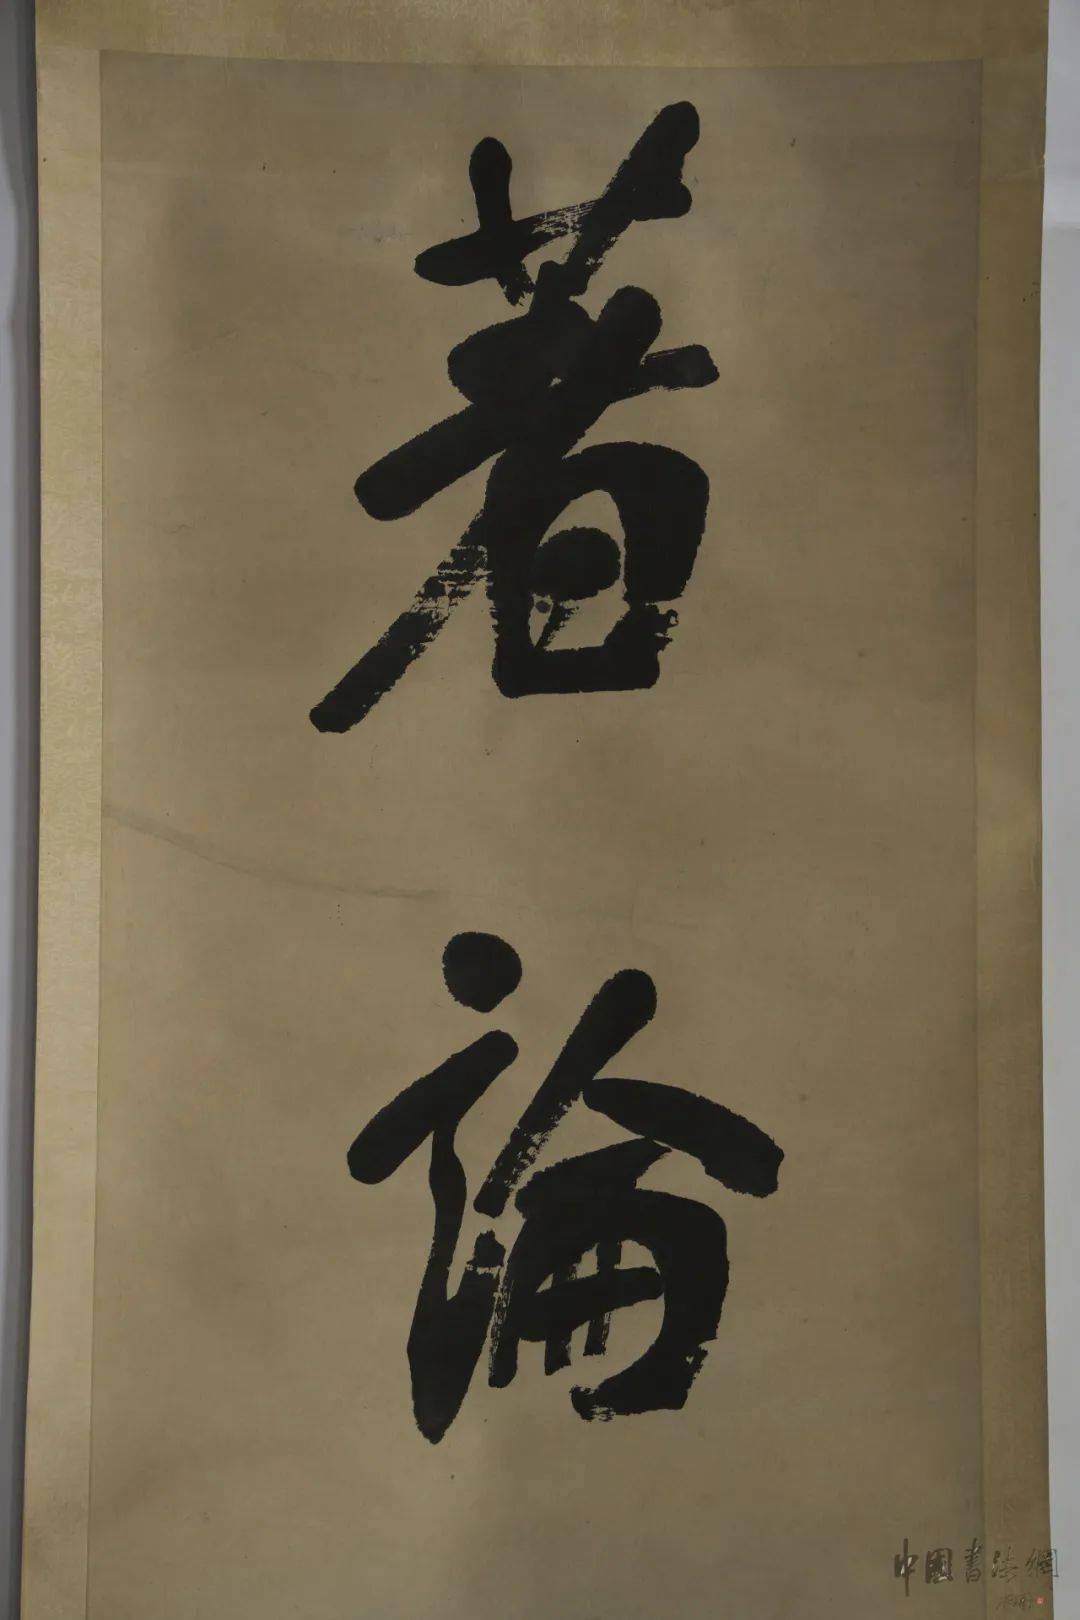 著
論
中国書法網